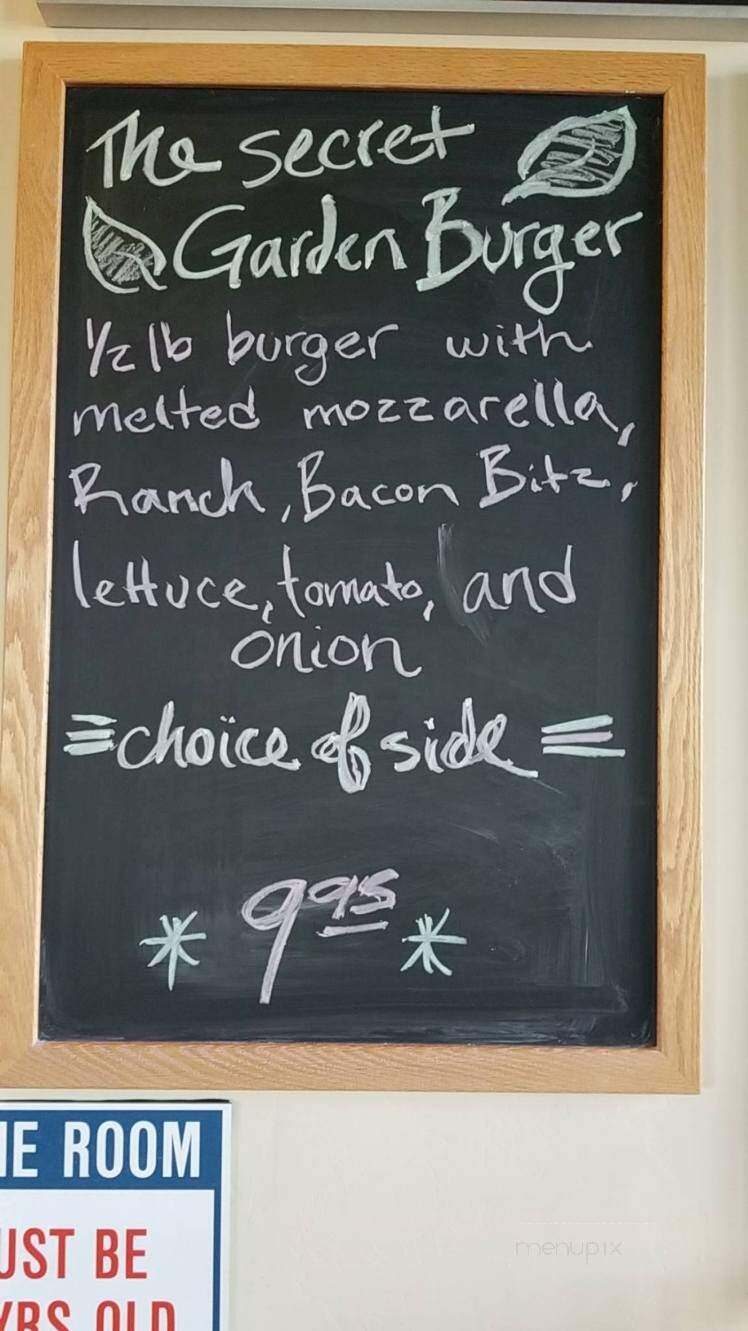 The secret
Garden Burger
1/2 lb burger with
melted mozzarella,
Ranch, Bacon Bitz,
lettuce, tomato, and
onion
=choice of side=
* 9 95 *
IE ROOM
UST BE
YRS OLD
menupix